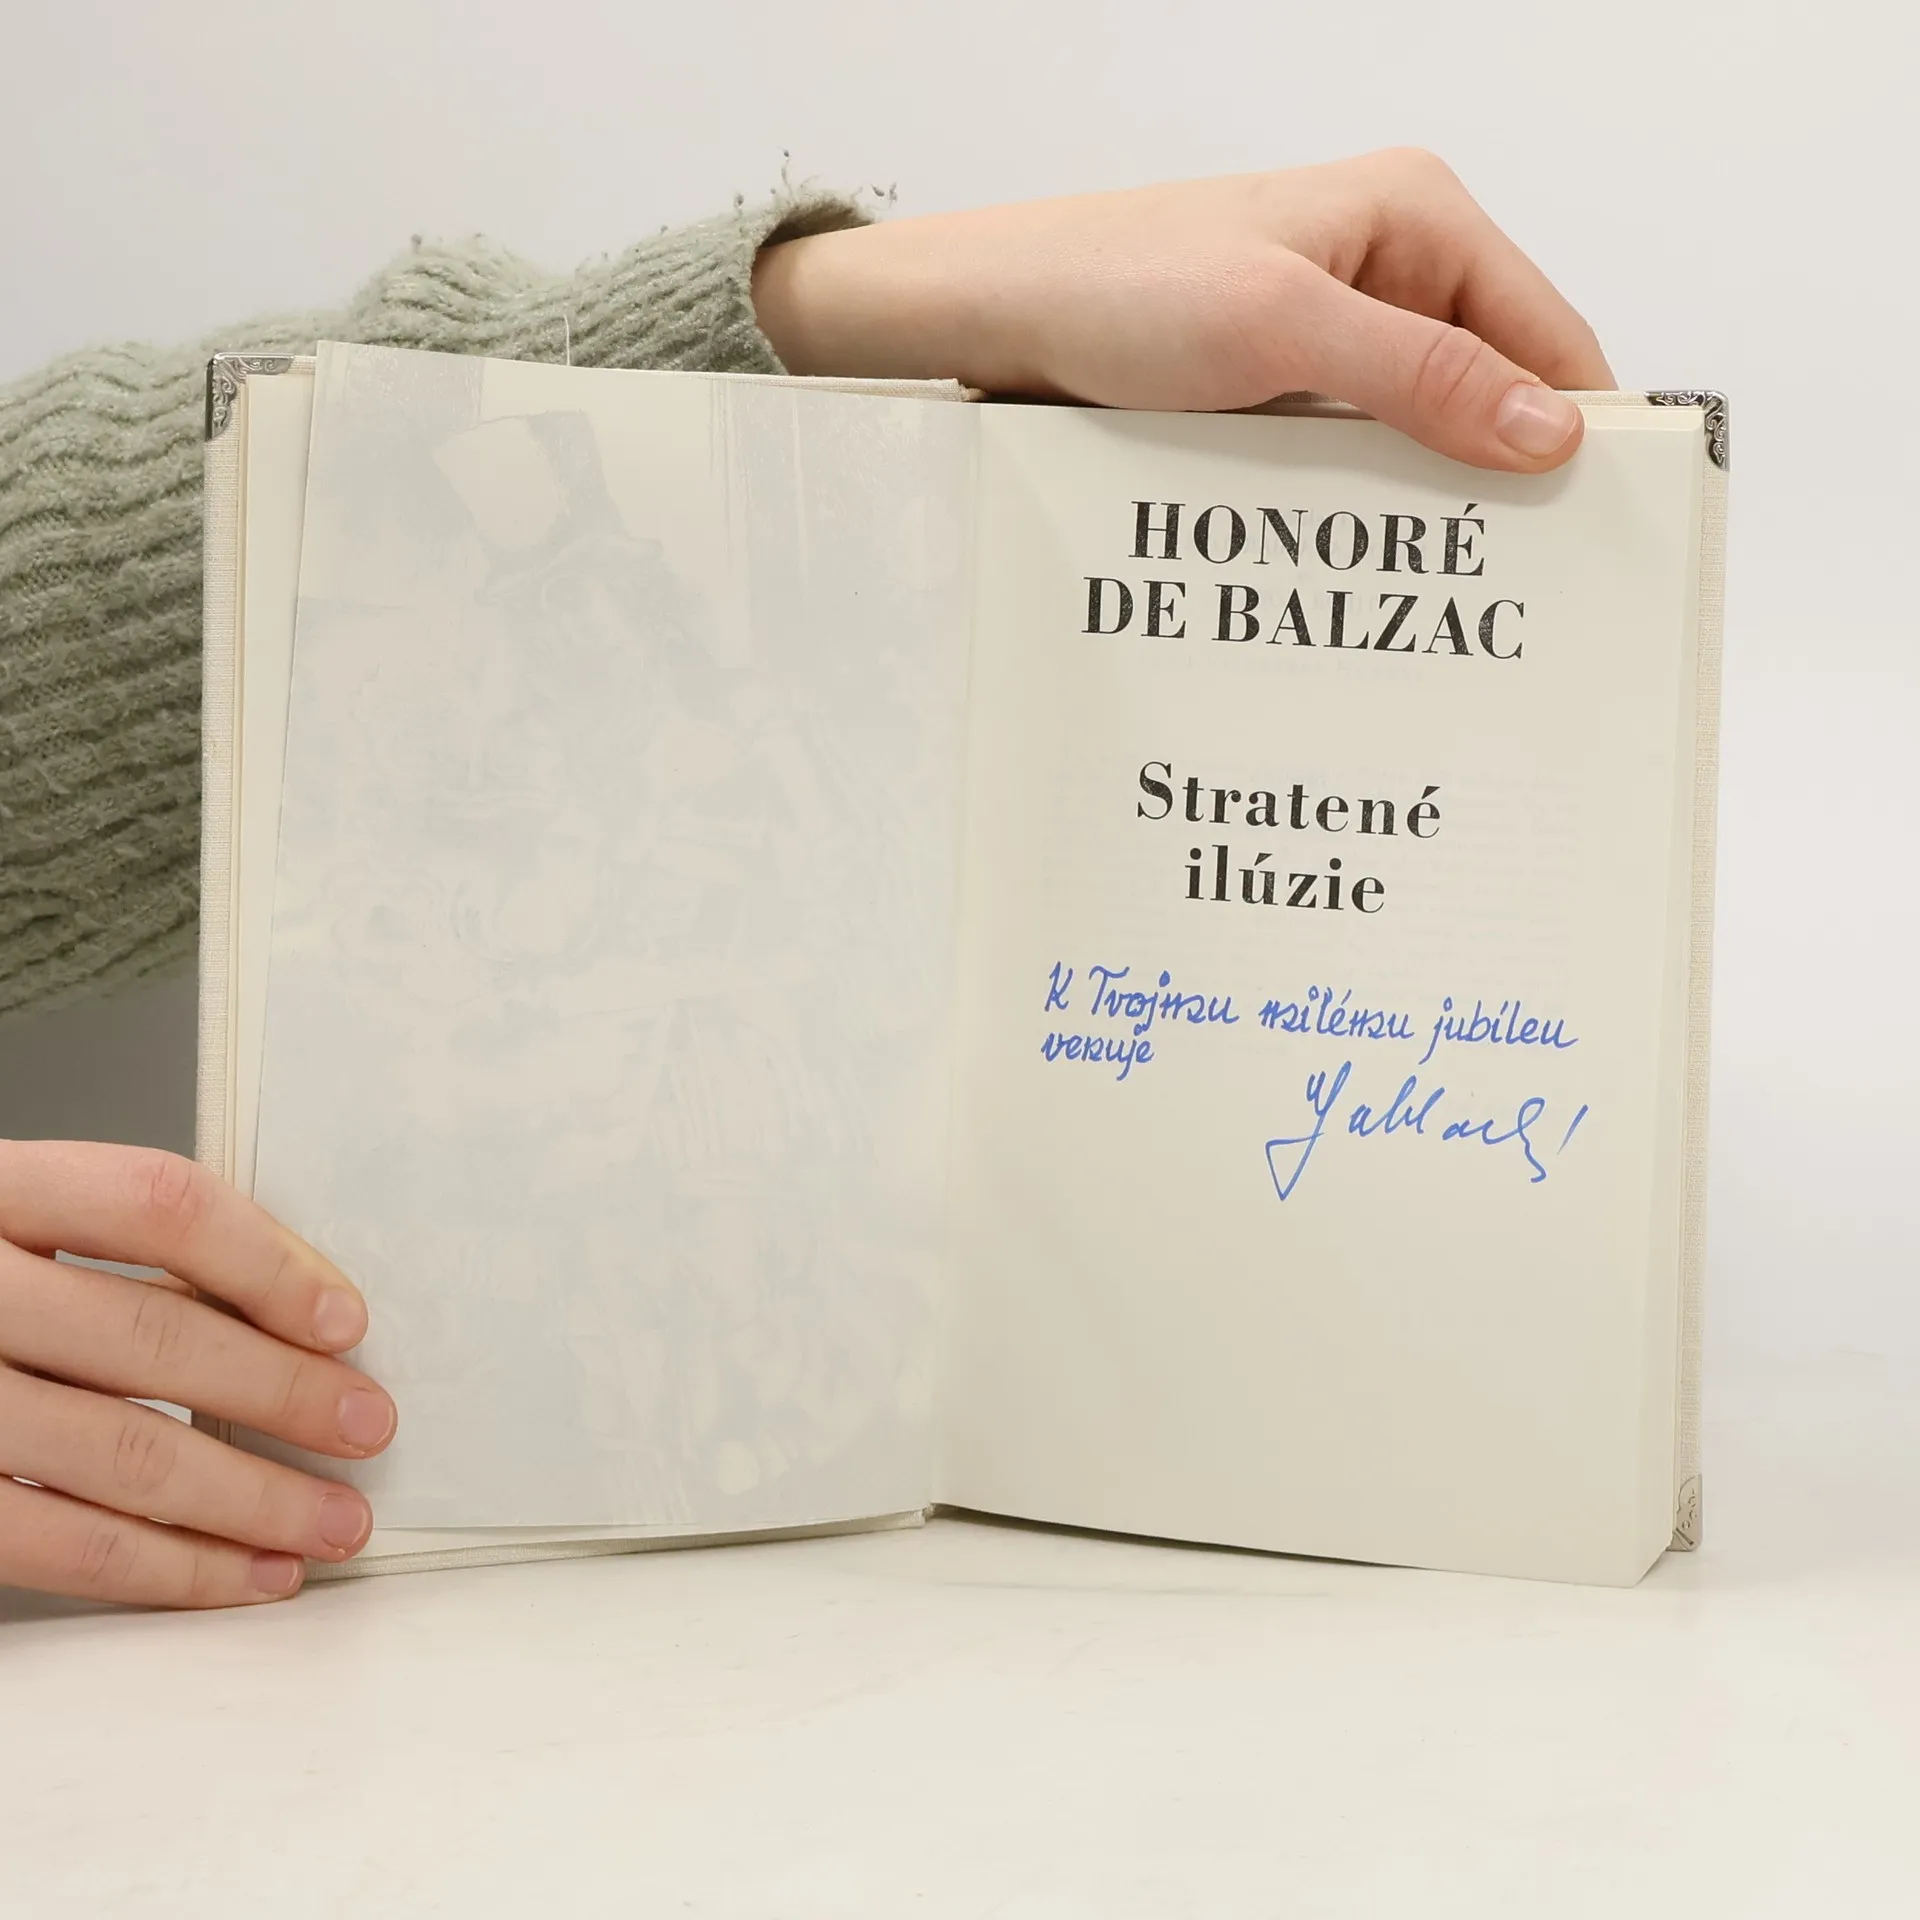 HONORÉ
DE BALZAC
Stratené
ilúzie
K Tvojmu milému jubileu
venuje